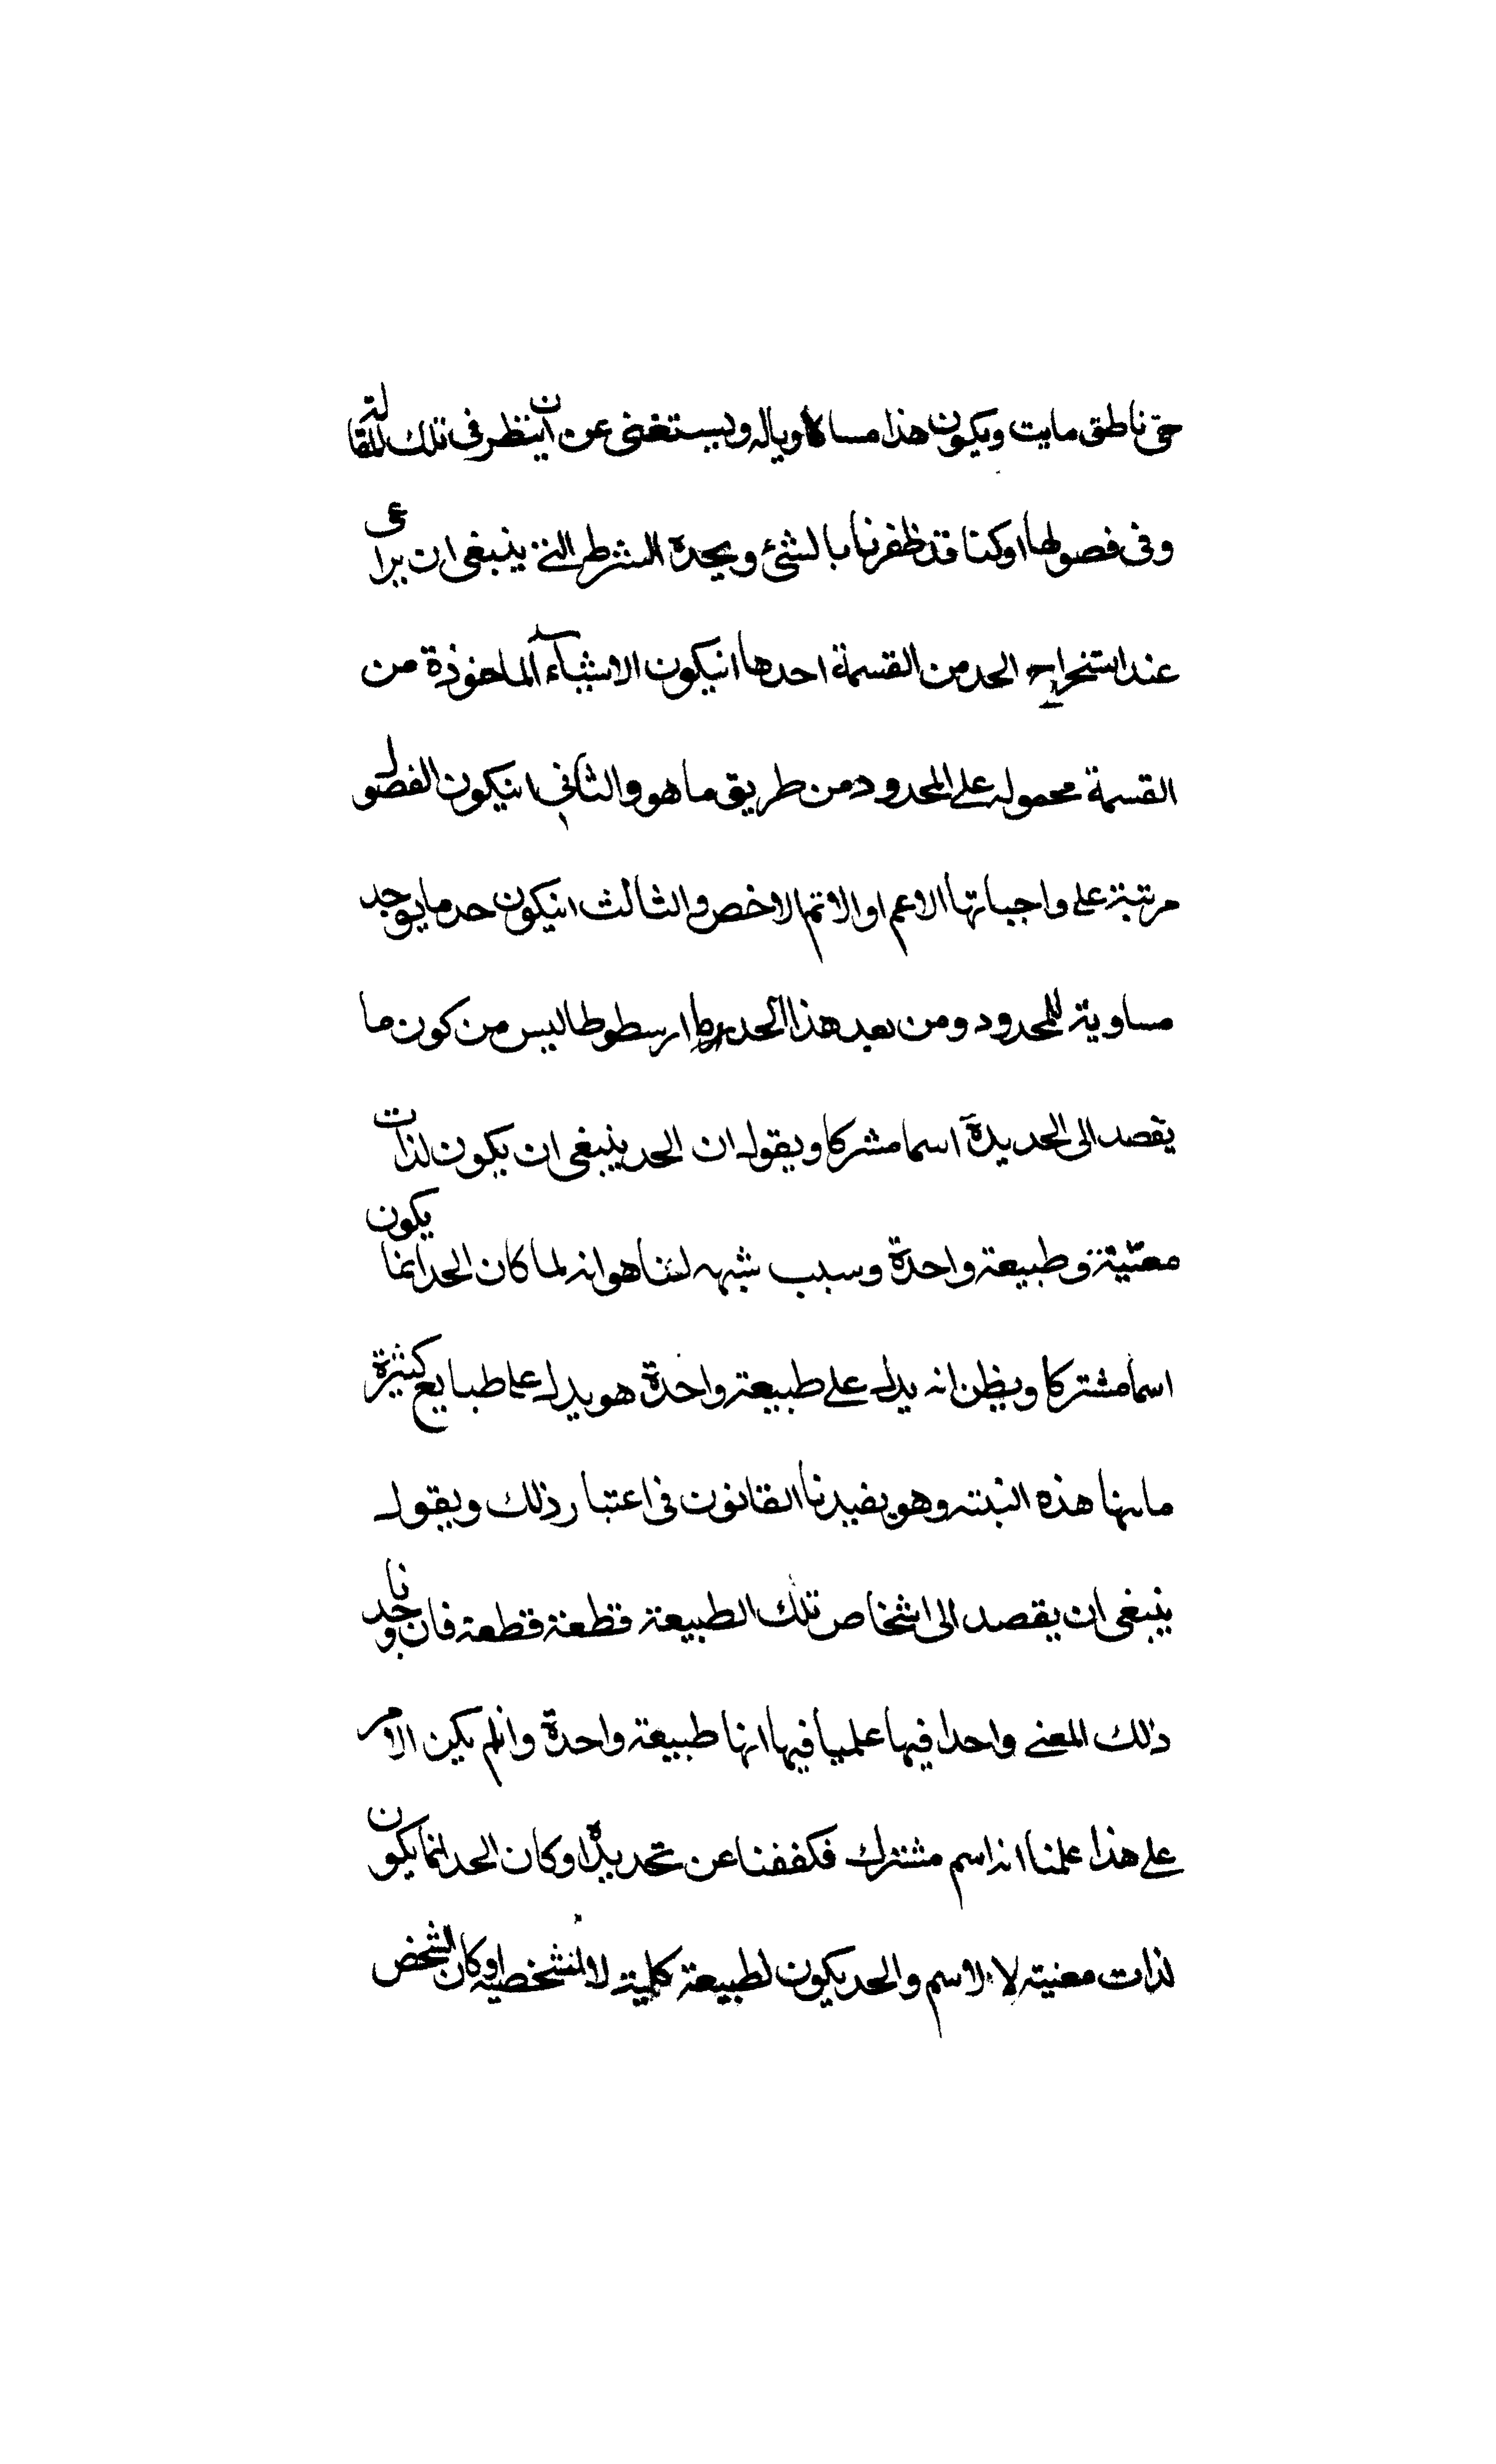 حى ناطق مايت ويكون هذا مساوياله ويستغنى عن ان ينظر فى تلك المقالة
وفى فصولها اوكنا قد ظفرنا بالشئ ويحده الشرط التى ينبغى ان يراعى
عند استخراج الحد من القسمة احدها انيكون الاشياء الماخوذة من
القسمة محموله على المحدود من طريق ما هو والثانى انيكون الفصول
مرتبة على واجباتها الاعم او الاتم الاخص والثالث انيكون حد ما يوجد
مساوية للمحدود ومن بعد هذا الحد ارسطوطاليس من كون ما
يقصد الى الحديدة اسما مشركا ويقول ان الحد ينبغى ان يكون لذات
معنية وطبيعة واحدة وسبب شبهه لننا هو انه لما كان الحد انما يكون
اسما مشتركا ويظن انه يدل على طبيعة واحدة هو يدل على طبايع كثيرة
مانها هذه النبته وهو يفيدنا القانون فى اعتبار ذلك ويقول
ينبغى ان يقصد الى اشخاص تلك الطبيعة قطعة قطعة فان وجدنا
ذلك المعنى واحدا فيها علميا فيها انها طبيعة واحدة وانلم يكن الامر
على هذا علمنا انه اسم مشترك فكففنا عن تحديده اوكان الحد انما يكون
لذات معنية لا لاسم والحد يكون لطبيعة كلية لا لمشخصية اوكان الشخص